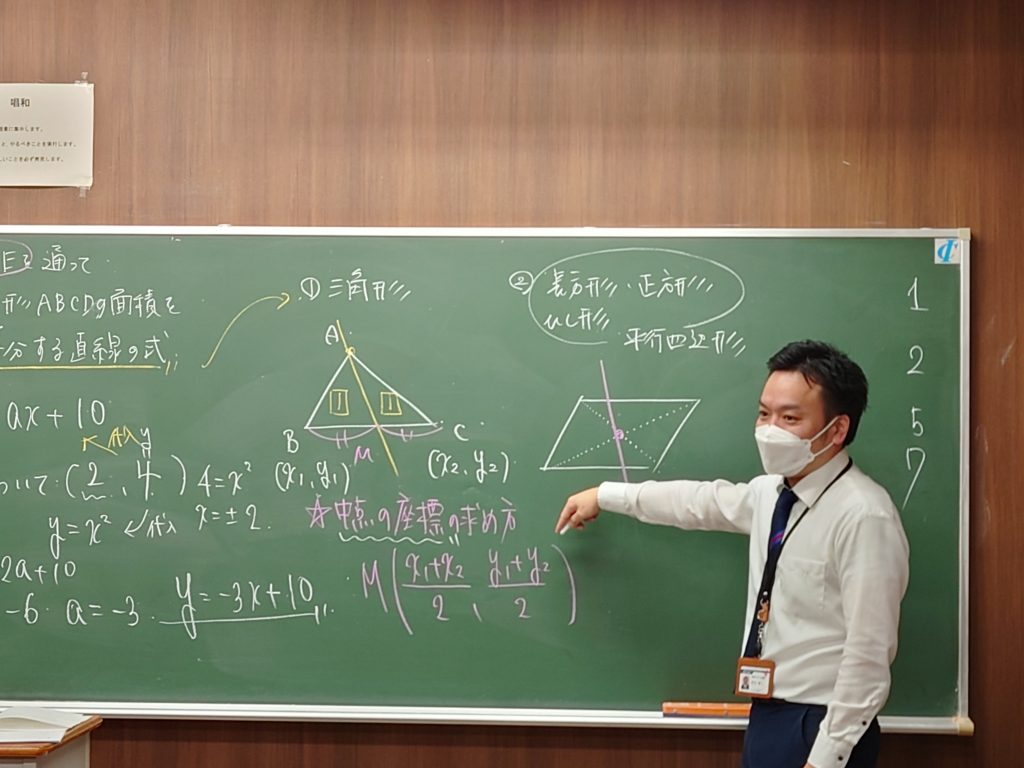 唱和
Eを通って
形ABCDの面積を
分する直線の式
ax+10
代入
y
ついて (2, 4) 4=x²
y=x² 代入 x=±2.
2a+10
-6 a=-3 y=-3x+10
① 三角形
A
B
M
C
(x₁, y₁)
(x₂, y₂)
☆中点の座標の求め方
M(x₁+x₂/2, y₁+y₂/2)
② 長方形、正方形
ひし形
平行四辺形
1
2
5
7